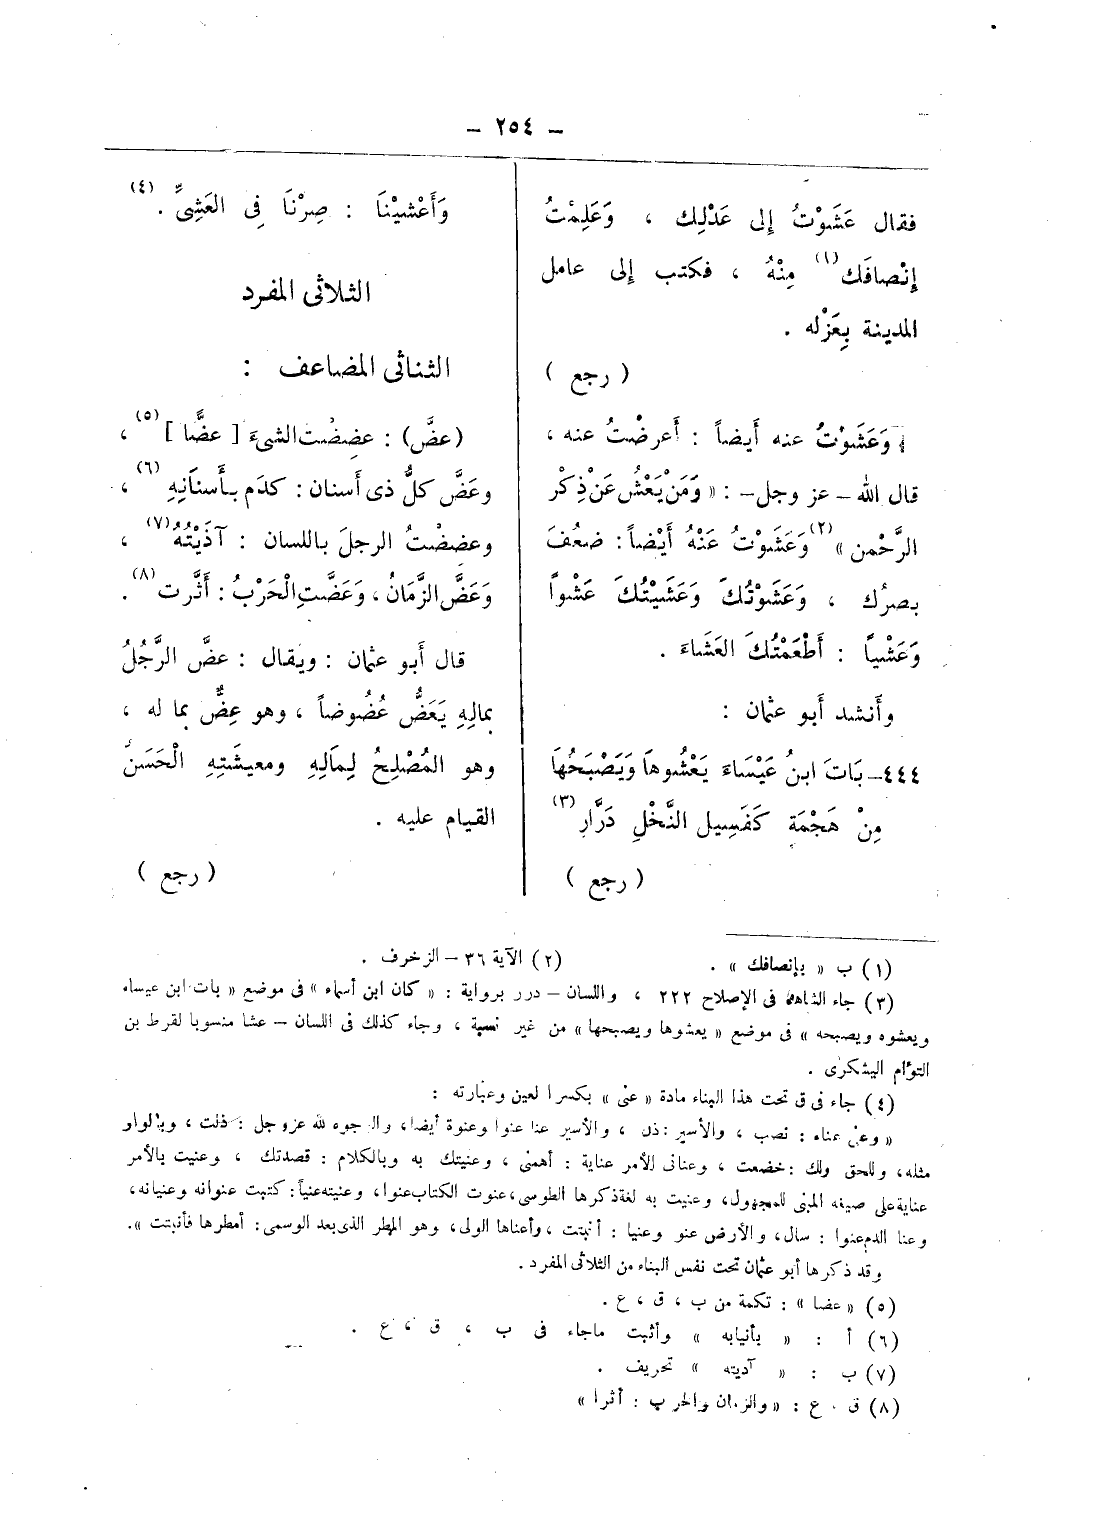 — ٢٥٤ —
فقال عَشَوْتُ إلى عَدْلِك ، وَعَلِمْتُ
إنْصافَك(١) مِنْهُ ، فكتب إلى عامل
المدينة بِعَزْله .
( رجع )
وَعَشَوْتُ عنه أيضاً : أعرضْتُ عنه ،
قال الله – عز وجل – : « وَمَنْ يَعْشُ عَنْ ذِكْر
الرَّحْمن »(٢) وَعَشَوْتُ عَنْهُ أَيْضاً : ضعُفَ
بصرُك ، وَعَشَوْتُكَ وَعَشَيْتُكَ عَشْواً
وَعَشْياً : أَطْعَمْتُكَ العَشَاءَ .
وأنشد أبو عثمان :
٤٤٤– بَاتَ ابنُ عَيْسَاءَ يَعْشُوهَا وَيَصْبَحُهَا
مِنْ هَجْمَةٍ كَفَسِيل النَّخْلِ دَرَّارِ(٣)
( رجع )
وَأَعْشَيْنَا : صِرْنَا فِى العَشِىِّ .(٤)
الثلاثى المفرد
الثنائى المضاعف :
(عضَّ) : عضِضْت الشىءَ [ عضًّا ](٥) ،
وعَضَّ كلُّ ذى أسنان : كدَم بأَسنَانِهِ(٦) ،
وعضِضْتُ الرجلَ باللسان : آذَيْتُهُ(٧) ،
وَعَضَّ الزَّمَانُ ، وَعَضَّتِ الْحَرْبُ : أَثَّرت(٨) .
قال أبو عثمان : ويقال : عضَّ الرَّجُلُ
بمالِهِ يَعَضُّ عُضُوضاً ، وهو عِضٌّ بما له ،
وهو المُصْلِحُ لِمَالِهِ ومعيشَتِهِ الْحَسَنُ
القيام عليه .
( رجع )
(١) ب « بإنصافك » . (٢) الآية ٣٦ – الزخرف .
(٣) جاء الشاهد فى الإصلاح ٢٢٢ ، واللسان – درر برواية : « كان ابن أسماء » فى موضع « بات ابن عيساء
ويعشوه ويصبحه » فى موضع « يعشوها ويصبحها » من غير نسبة ، وجاء كذلك فى اللسان – عشا منسوبا لقرط بن
التوأم اليشكرى .
(٤) جاء فى ق تحت هذا البناء مادة « عنى » بكسر العين وعبارته :
« وعنى عناء : نصب ، والأسير : ذل ، والأسير عنا عنوا وعنوة أيضا ، والوجوه لله عز وجل : ذلت ، وبالواو
مثله ، وللحق ولك : خضعت ، وعنانى الأمر عناية : أهمنى ، وعنيتك به وبالكلام : قصدتك ، وعنيت بالأمر
عناية على صيغه المبنى للمجهول ، وعنيت به لغة ذكرها الطوسى ، عنوت الكتاب عنوا ، وعنيته عنياً : كتبت عنوانه وعنيانه ،
وعنا الدم عنوا : سال ، والأرض عنو وعنيا : أنبتت ، وأعناها الولى ، وهو المطر الذى بعد الوسمى : أمطرها فأنبتت » .
وقد ذكرها أبو عثمان تحت نفس البناء من الثلاثى المفرد .
(٥) « عضا » : تكمة من ب ، ق ، ع .
(٦) أ : « بأنيابه » وأثبت ماجاء فى ب ، ق ، ع .
(٧) ب : « آديته » تحريف .
(٨) ق . ع : « والزمان والحرب : أثرا »